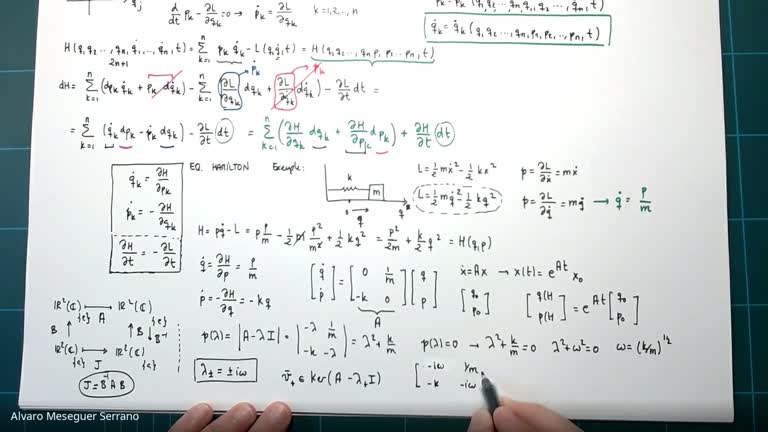 q_j
d/dt p_k - ∂L/∂q_k = 0 → ṗ_k = ∂L/∂q_k   k=1,2,..,n
q̇_k = q̇_k (q_1 q_2, ..., q_n, p_1, p_2, .., p_n, t)
H(q_1 q_2 ... q_n, q̇_1, ..., q̇_n, t) = Σ_{k=1}^{n} p_k q̇_k - L(q, q̇, t) = H(q_1 q_2 ... q_n p_1 p_2 ... p_n, t)
2n+1
dH = Σ_{k=1}^{n} (dp_k q̇_k + p_k dq̇_k) - Σ_{k=1}^{n} (∂L/∂q_k dq_k + ∂L/∂q̇_k dq̇_k) - ∂L/∂t dt =
ṗ_k p_k
= Σ_{k=1}^{n} (q̇_k dp_k - ṗ_k dq_k) - ∂L/∂t dt = Σ_{k=1}^{n} (∂H/∂q_k dq_k + ∂H/∂p_k dp_k) + ∂H/∂t dt
q̇_k = ∂H/∂p_k
ṗ_k = -∂H/∂q_k
∂H/∂t = -∂L/∂t
EQ. HAMILTON Exemple:
k m
0 q
L = 1/2 mẋ² - 1/2 kx²   p = ∂L/∂ẋ = mẋ
L = 1/2 mq̇² - 1/2 kq²   p = ∂L/∂q̇ = mq̇ → q̇ = p/m
H = pq̇ - L = p p/m - 1/2 m p²/m² + 1/2 kq² = p²/2m + k/2 q² = H(q,p)
q̇ = ∂H/∂p = p/m
ṗ = -∂H/∂q = -kq
[q̇ ṗ] = [0 1/m -k 0] [q p]
A
ẋ = Ax → x(t) = e^{At} x_0
[q_0 p_0] [q(t) p(t)] = e^{At} [q_0 p_0]
ℝ²(ℂ) ⟼ ℝ²(ℂ)
{e} A {e}
B ↑ B ↓↑ B⁻¹
ℝ²(ℂ) ⟼ ℝ²(ℂ)
J
J = B⁻¹AB
p(λ) = |A - λI| = |-λ 1/m -k -λ| = λ² + k/m   p(λ) = 0 → λ² + k/m = 0   λ² + ω² = 0   ω = (k/m)^{1/2}
λ_± = ±iω   v̄_+ ∈ Ker(A - λ_+ I)   [-iω 1/m -k -iω
Alvaro Meseguer Serrano